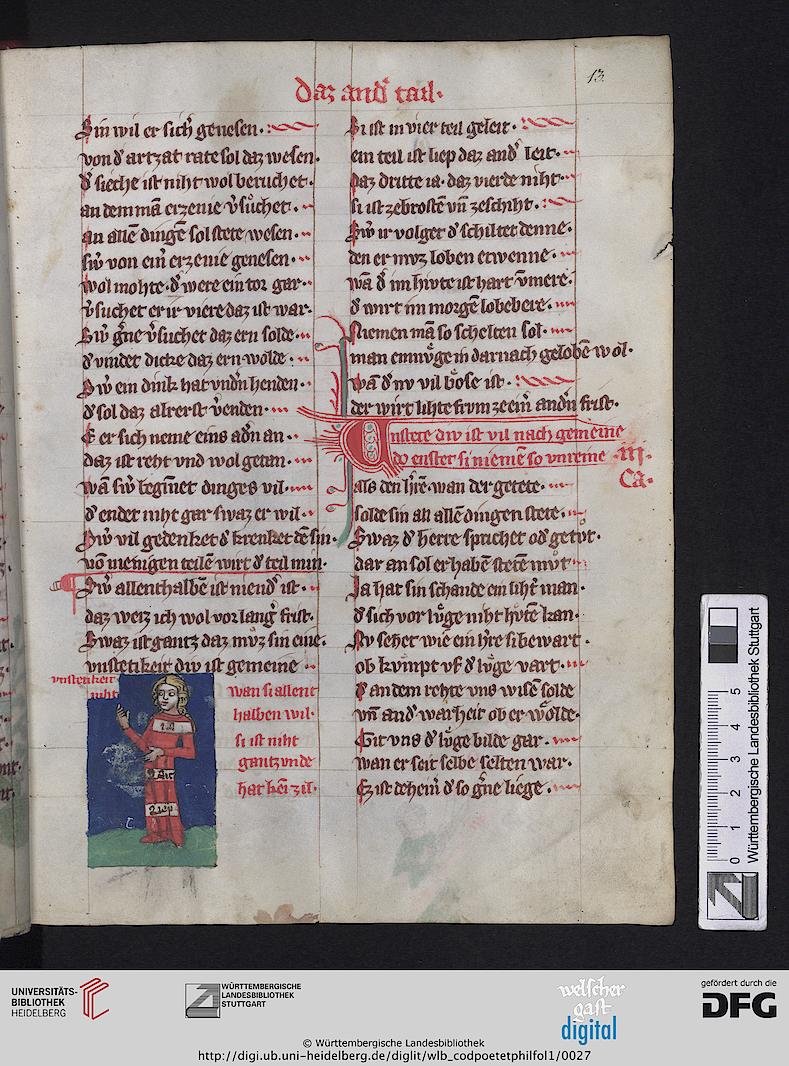 daz and᷑ tail·
13
Sin wil er sich genesen·
von d᷑ artzat rate sol daz wesen·
d᷑ sieche ist niht wol beruchet·
an dem mā erzenie v᷑suͦchet·
An allē dingē sol stete wesen·
swͦ von eim᷑ erzenie genesen·
wol mohte· d᷑ were ein tor gar·
v᷑suchet er ir viere daz ist war·
Swͦ g᷑ne v᷑suchet daz ern solde·
d᷑ vindet dicke daz ern wolde·
Swͦ ein dink hat vnd᷑n henden·
d᷑ sol daz alrerst v᷑enden·
E er sich neme eins ad᷑n an·
daz ist reht vnd wol getan·
wā swͦ begīnet dinges vil·
d᷑ endet niht gar swaz er wil·
Swͦ vil gedenket d᷑ krenket dē sin·
vō menigen teilē wirt d᷑ teil min·
Swͦ allenthalbē ist niend᷑ ist·
daz weiz ich wol vor lang᷑ frist·
Swaz ist gantz daz mvͦz sin eine·
vnstetikeit div ist gemeine
vnstetikeit
niht
wan si allent
halben wil·
si ist niht
gantz vnde
hat kein zil·
Si ist in vier teil geleit·
ein teil ist liep daz and᷑ leit·
Daz dritte ia· daz vierde niht·
si ist zebrostē vn̄ zeschiht·
Swͦ ir volget d᷑ schiltet denne·
den er mvz loben etwenne·
wā d᷑ im hivte ist hart vnmere·
d᷑ wirt im morgē lobebere·
Niemen mā so schelten sol·
man enmvͦge in darnach gelobē wol·
wā d᷑ nv vil boͤse ist·
der wirt lihte frvm zeeim᷑ and᷑n frist·
Unstete div ist vil nach gemeine
do enster si niemē so vnreine
·III·
Ca·
als den h᷑rē· wan der getete·
solde sin an allē dingen stete·
Swaz d᷑ herre sprichet od᷑ getvͦt·
dar an sol er habē stetē mvͦt
Ja hat sin schande ein liht᷑ man·
d᷑ sich vor lvͦge niht hvtē kan·
Nv sehet wie ein h᷑re si bewart·
ob kvͦmpt vf d᷑ lvͦge vart·
D᷑ an dem rehte vns wisē solde
vn̄ and᷑ warheit ob er woͤlde·
Git vns d᷑ lvͦge bilde gar·
wan er seit selbe selten war·
Ez ist deheim᷑ d᷑ so g᷑ne liege·
0 1 2 3 4 5
Württembergische Landesbibliothek Stuttgart
UNIVERSITÄTS-
BIBLIOTHEK
HEIDELBERG
WÜRTTEMBERGISCHE
LANDESBIBLIOTHEK
STUTTGART
welscher
gast
digital
gefördert durch die
DFG
© Württembergische Landesbibliothek
http://digi.ub.uni-heidelberg.de/diglit/wlb_codpoetetphilfol1/0027